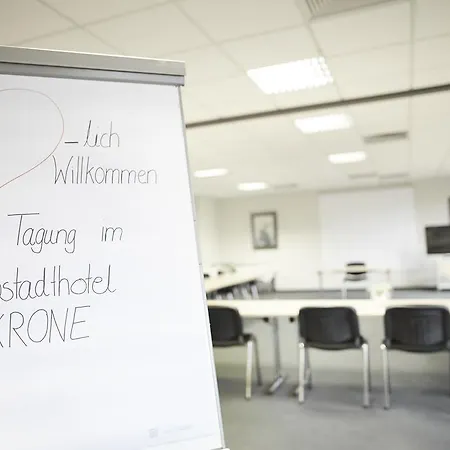 – lich
Willkommen
Tagung im
stadthotel
KRONE